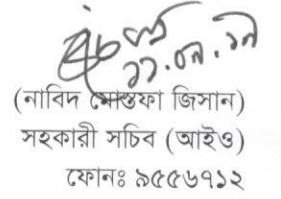 ১১.০৭.১৭
(নাবিদ মোস্তফা জিসান)
সহকারী সচিব (আইও)
ফোনঃ ৯৫৫৬৭১২